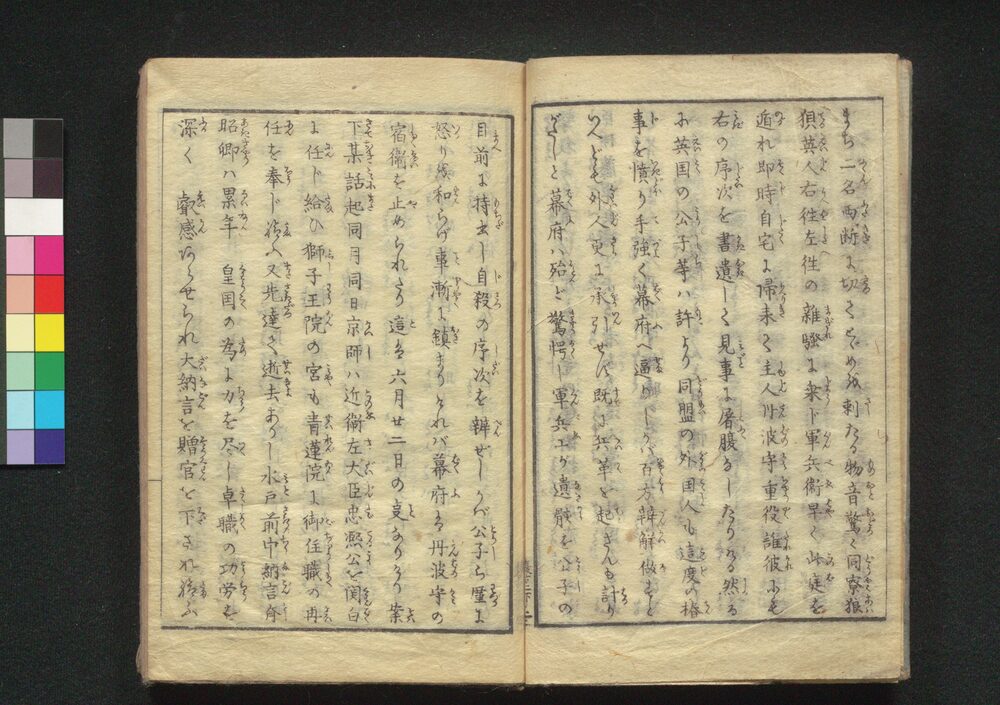 まち二名両断に切てとゞめを刺たる物音驚く同寮狼
狽英人右往左往の雑騒に乗じ軍兵衛早く此庭を
遁れ即時自宅に帰来て主人丹波守重役誰彼にも
右の序次を書遺して見事に屠腹なしたりける然る
に英国の公子等ハ許より同盟の外国人も這度の椿
事を憤ハり手強く幕府へ逼りしかバ百方弁解做すと
いへども外人更に承引せず既に兵革を起さんも計り
がたしと幕府ハ殆と驚愕し軍兵エが遺骸を公子の
目前に持出し自殺の序次を辨ぜしかバ公子も堅に
怒り緩和らげ事漸に鎮まりけれバ幕府ゟ丹波守の
宿衛を止められたり這は六月廿二日の変なりけり案
下某話起同月同日京師ハ近衛左大臣忠煕公を関白
に任じ給ひ獅子王院の宮も青蓮院に御住職の再
任を奉じ給へ又先達て逝去ありし水戸前中納言斉
昭卿ハ累年 皇国の為に力を尽し卓職の功労を
深く 叡感あらせられ大納言を贈官を下され給ふ